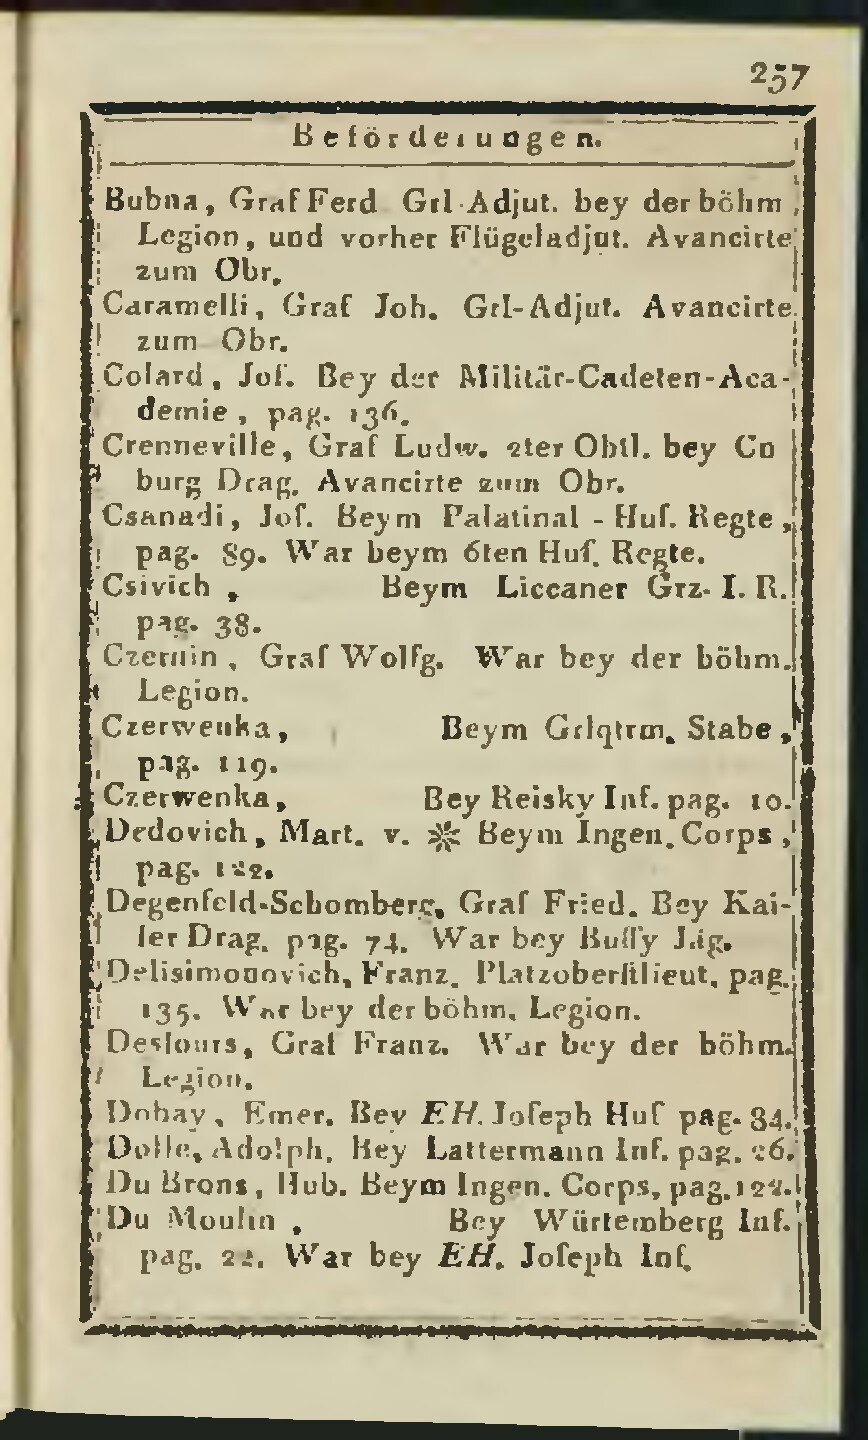 257
Beförderungen.
Bubna, Graf Ferd Grl-Adjut. bey der böhm
Legion, und vorher Flügeladjut. Avancirte
zum Obr.
Caramelli, Graf Joh. Grl-Adjut. Avancirte
zum Obr.
Colard, Jos. Bey der Militär-Cadeten-Aca-
demie, pag. 136.
Crenneville, Graf Ludw. 2ter Obtl. bey Co
burg Drag. Avancirte zum Obr.
Csanadi, Joſ. Beym Palatinal-Huſ. Regte,
pag. 89. War beym 6ten Huſ. Regte.
Csivich, Beym Liccaner Grz- I. R.
pag. 38.
Czernin, Graf Wolfg. War bey der böhm.
Legion.
Czerwenka, Beym Grlqtrm. Stabe,
pag. 119.
Czerwenka, Bey Reisky Inf. pag. 10.
Dedovich, Mart. v. ※ Beym Ingen. Corps,
pag. 122.
Degenfeld-Schomberg, Graf Fried. Bey Kai-
ſer Drag. pag. 74. War bey Buſſy Jäg.
Delisimonovich, Franz. Platzoberſtlieut. pag.
135. War bey der böhm. Legion.
Desfours, Graf Franz. War bey der böhm.
Legion.
Dobay, Emer. Bey EH. Joſeph Huſ pag. 84.
Dolle, Adolph. Bey Lattermann Inf. pag. 26.
Du Brons, Hub. Beym Ingen. Corps, pag. 122.
Du Moulin, Bey Würtemberg Inf.
pag. 22. War bey EH. Joſeph Inf.